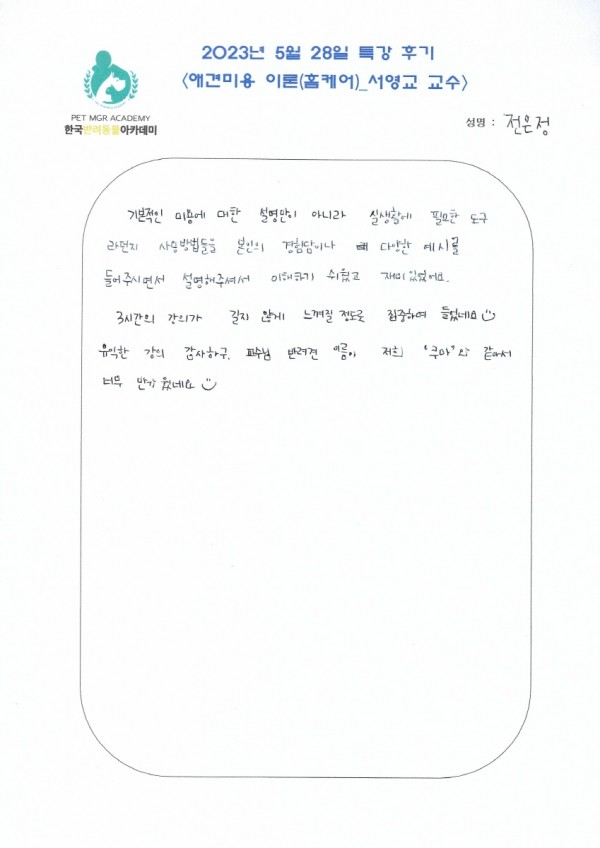 2023년 5월 28일 특강 후기
<애견미용 이론(홈케어)_서영교 교수>
PET MGR ACADEMY
한국반려동물아카데미
성명 : 전은정
기본적인 미용에 대한 설명만이 아니라 실생활에 필요한 도구
라던지 사용방법들을 본인의 경험담이나 다양한 예시를
들어주시면서 설명해주셔서 이해하기 쉬웠고 재미있었어요.
3시간의 강의가 길지 않게 느껴질 정도로 집중하여 들었네요
유익한 강의 감사하구, 교수님 반려견 이름이 저희 "쿠마"와 같아서
너무 반가웠네요